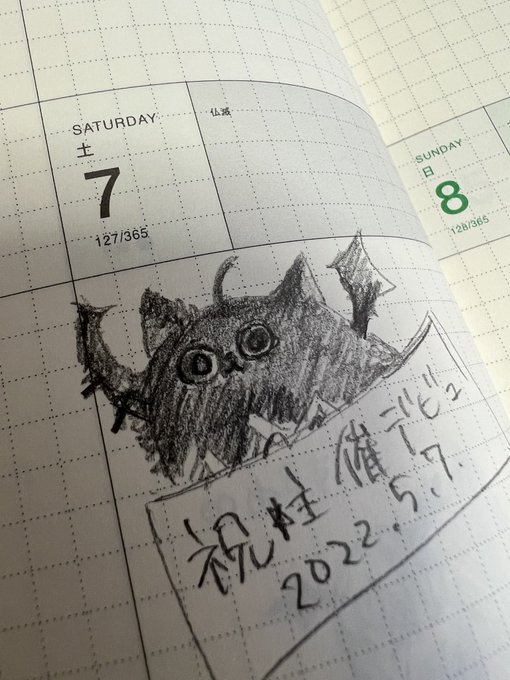 SATURDAY
土
7
127/365
仏滅
SUNDAY
日
8
128/365
祝 催デビュ
2022.5.7.